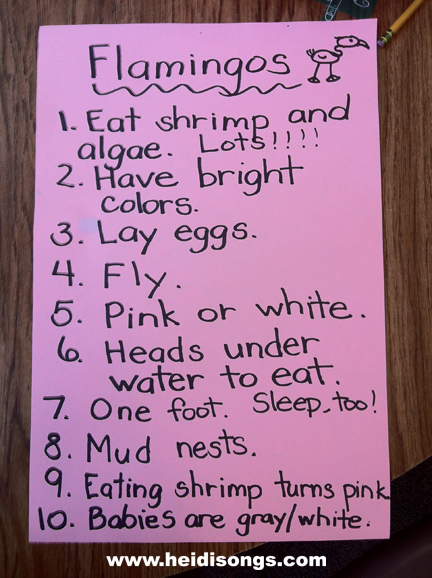 Flamingos
1. Eat shrimp and
algae. Lots!!!!
2. Have bright
colors.
3. Lay eggs.
4. Fly.
5. Pink or white.
6. Heads under
water to eat.
7. One foot. Sleep, too!
8. Mud nests.
9. Eating shrimp turns pink
10. Babies are gray/white.
www.heidisongs.com